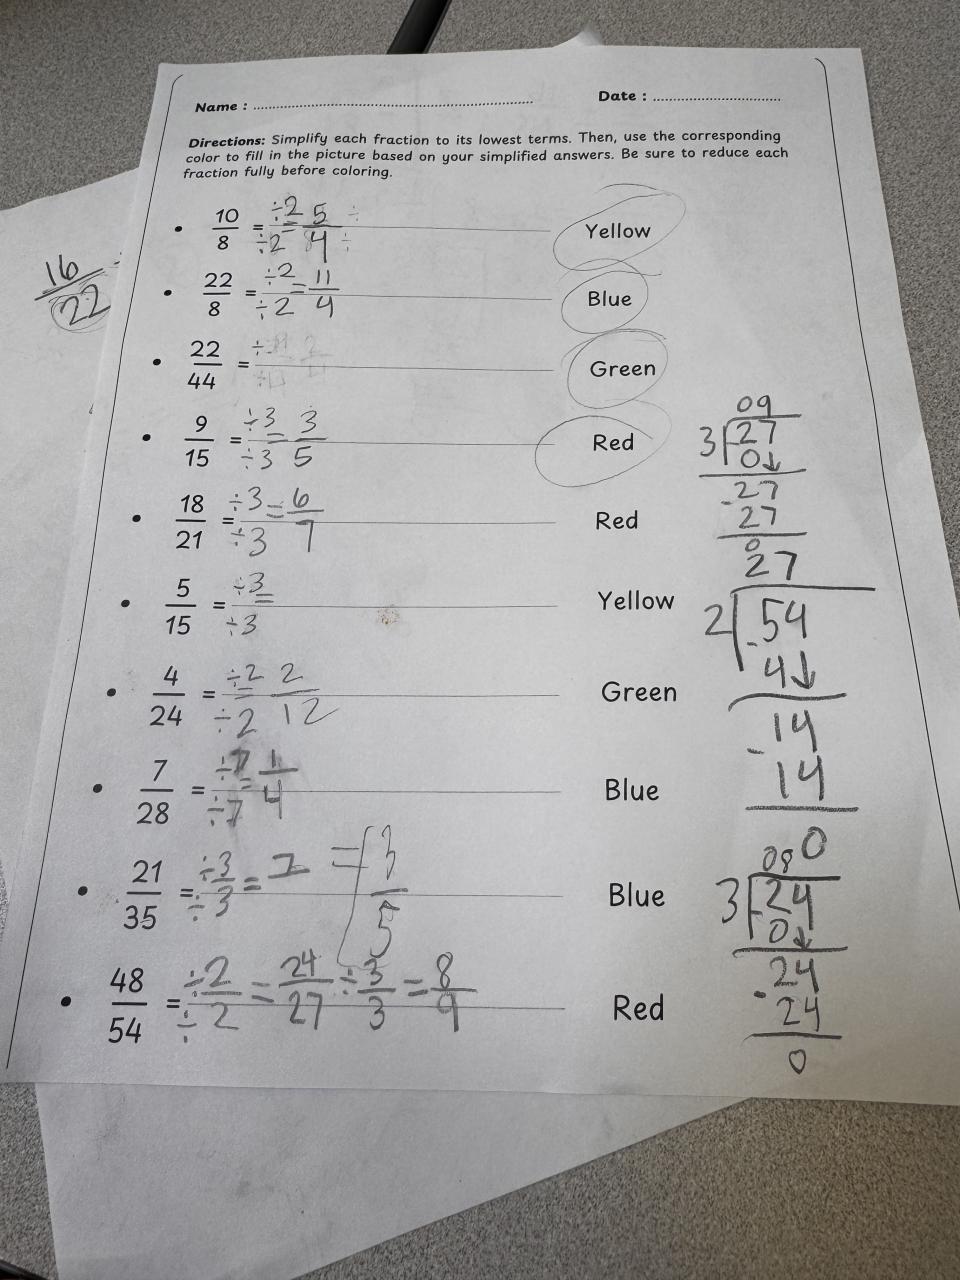 Name : ........................................ Date : ....................
Directions: Simplify each fraction to its lowest terms. Then, use the corresponding
color to fill in the picture based on your simplified answers. Be sure to reduce each
fraction fully before coloring.
• 10/8 = ÷2/÷2 = 5/4 Yellow
• 22/8 = ÷2/÷2 = 11/4 Blue
16/22
• 22/44 = Green
• 9/15 = ÷3/÷3 = 3/5 Red
• 18/21 = ÷3/÷3 = 6/7 Red
• 5/15 = ÷3/÷3 = Yellow
• 4/24 = ÷2/÷2 = 2/12 Green
• 7/28 = ÷7/÷7 = 1/4 Blue
• 21/35 = ÷3/÷3 = 7 = 3/5 Blue
• 48/54 = ÷2/÷2 = 24/27 ÷ 3/3 = 8/9 Red
09
3 27
0↓
-27
27
0
27
2 54
-4↓
-14
14
0
08
3 24
-0↓
-24
24
0